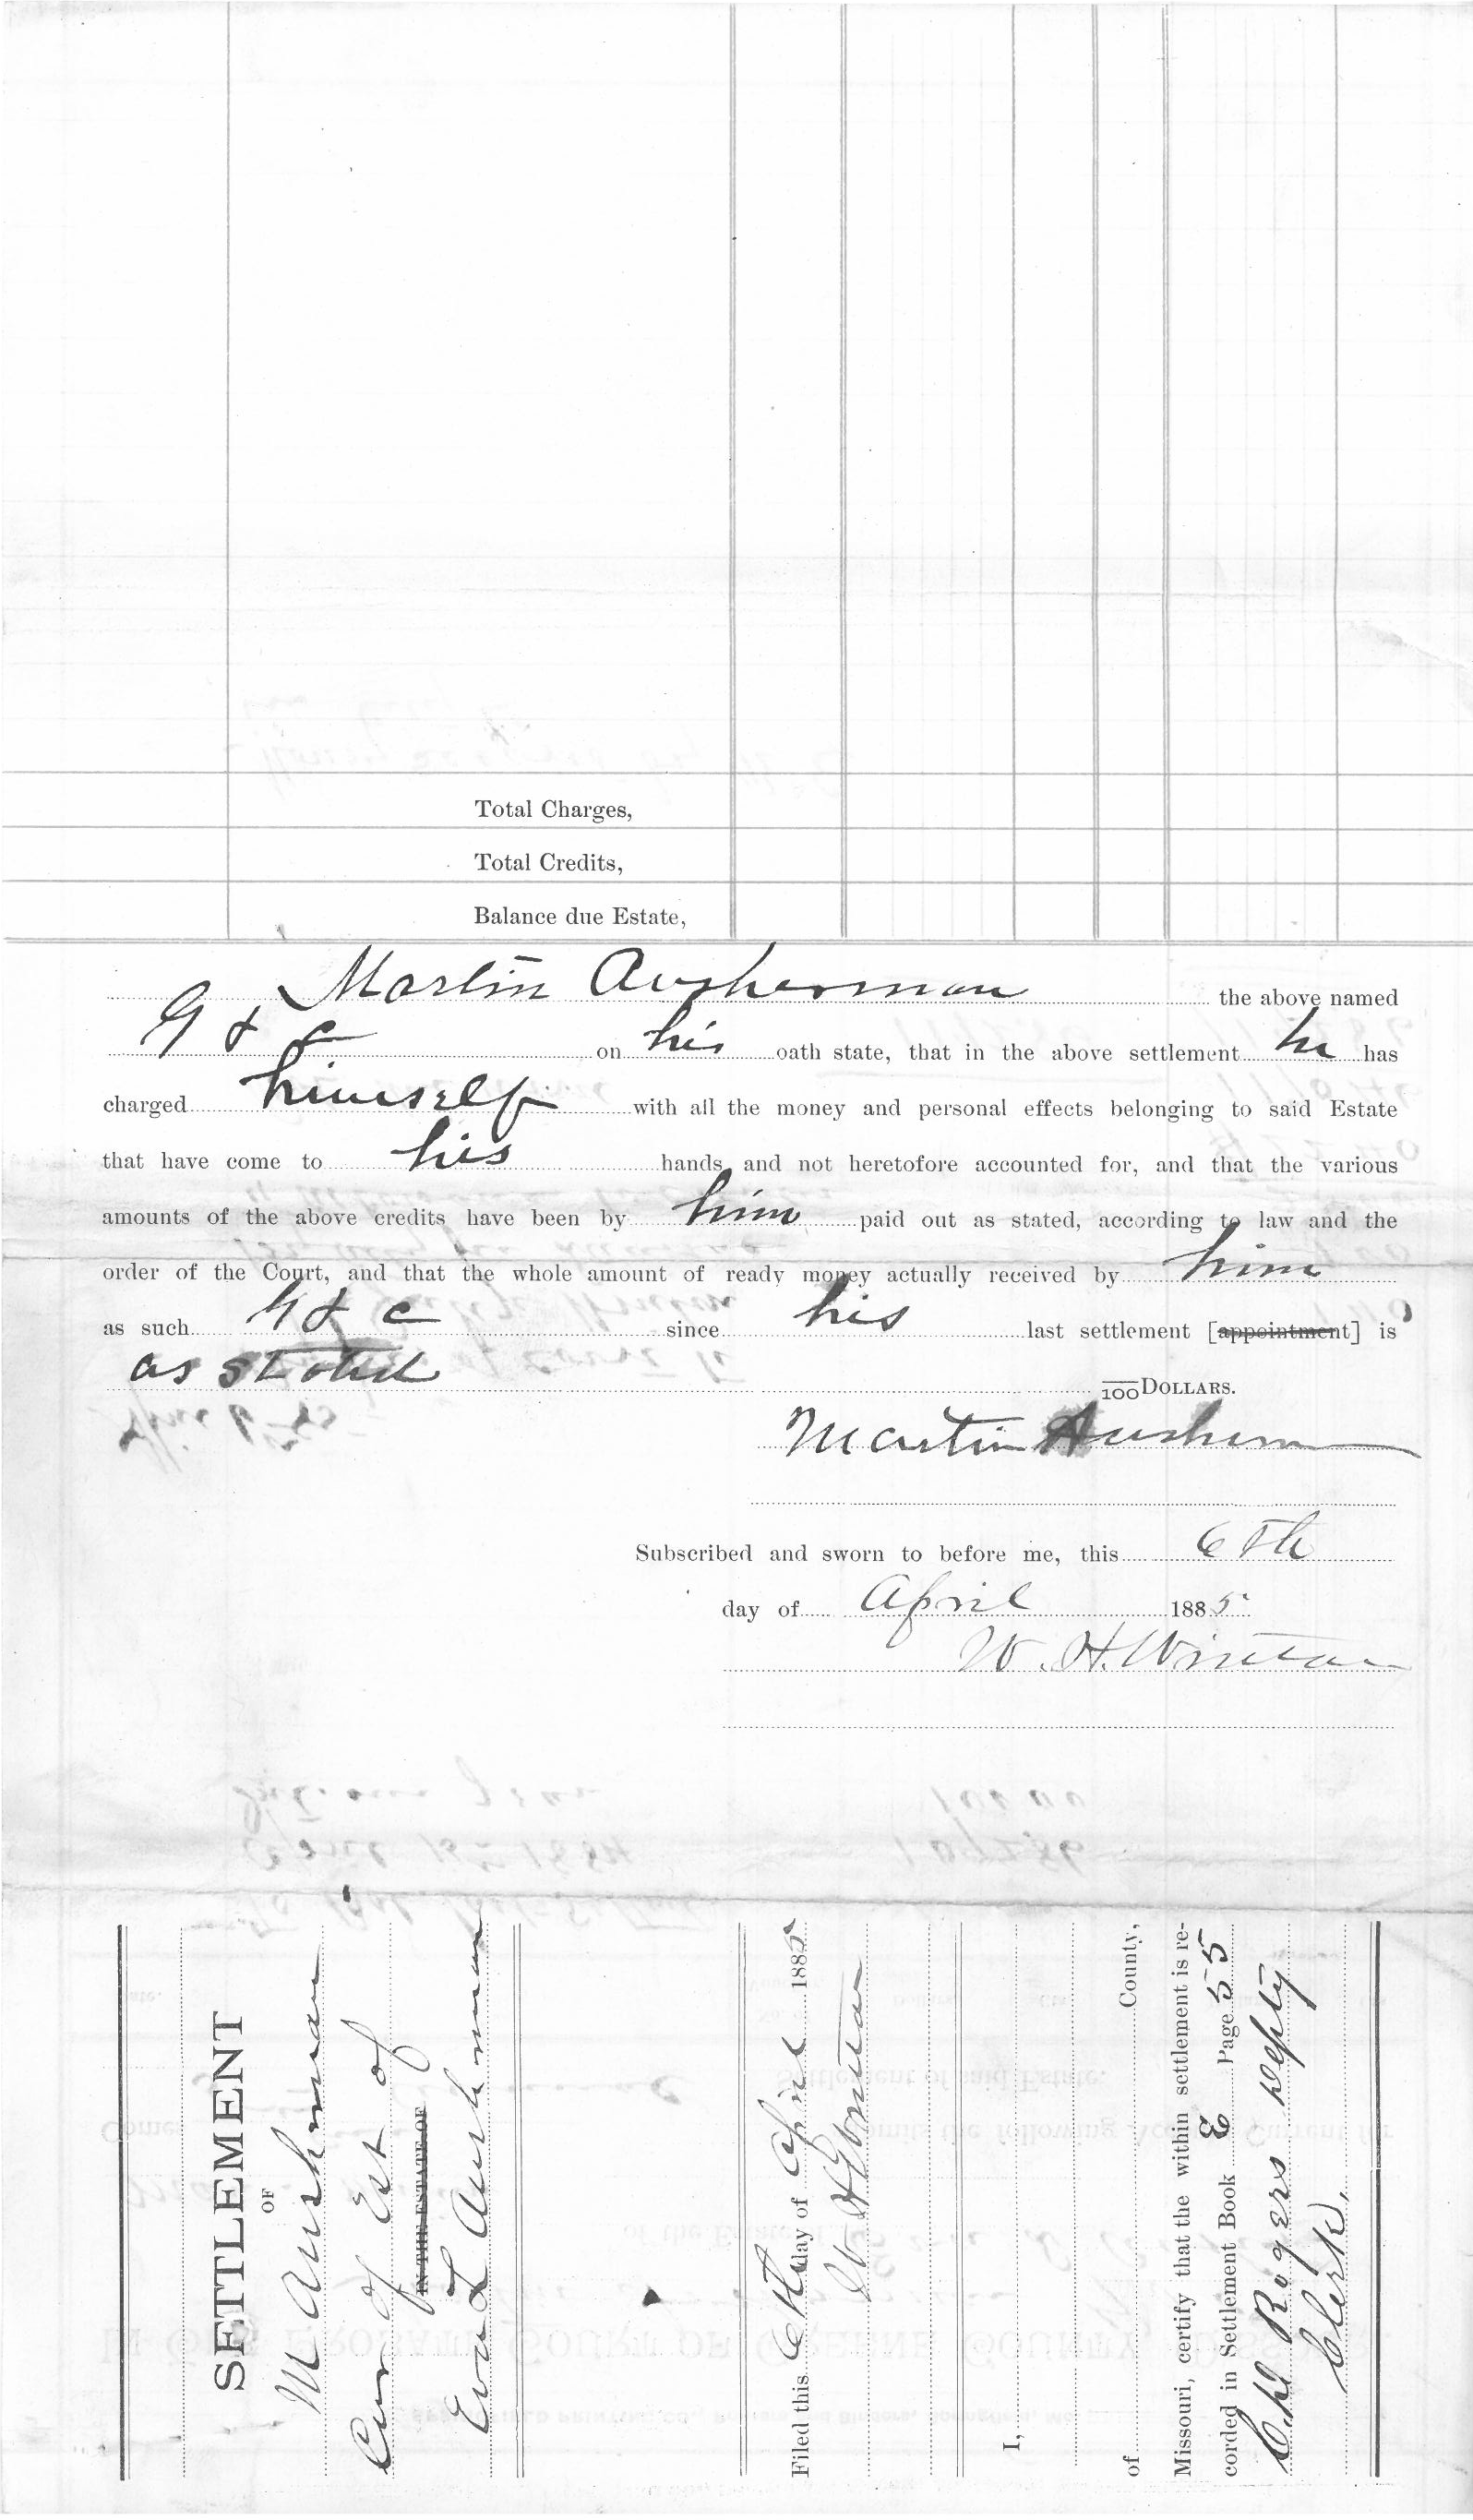 Total Charges,
Total Credits,
Balance due Estate,
Martin Ausherman the above named
G & C on his oath state, that in the above settlement he has
charged himself with all the money and personal effects belonging to said Estate
that have come to his hands and not heretofore accounted for, and that the various
amounts of the above credits have been by him paid out as stated, according to law and the
order of the Court, and that the whole amount of ready money actually received by him
as such G & C since his last settlement [appointment] is
as stated /100 DOLLARS.
Martin Ausherman
Subscribed and sworn to before me, this 6th
day of April 1885
W. H. Winton
SETTLEMENT
OF
M Aushman
Cur of Est of
IN THE ESTATE OF
Eva L Aushman
Filed this 6th day of April 1885
W H Winton
I,
of County,
Missouri, certify that the within settlement is re-
corded in Settlement Book E Page 55
Rogers Depty
Clerk.